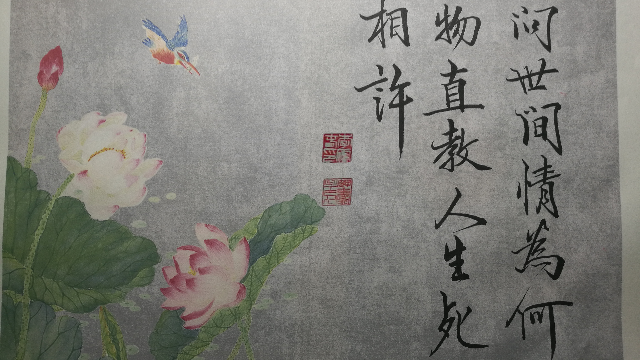 问世间情為何
物直教人生死
相許